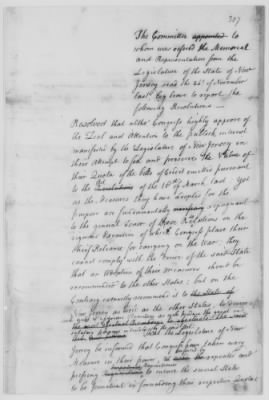 307
The Committee appointed to
whom was referred the Memorial
and Representation from the
Legislature of the State of New
Jersey read the 24th of November
last beg leave to report the
following Resolutions
Resolved that altho' Congress highly approve of
the Zeal and Attention to the publick interest
manifested by the Legislature of New Jersey in
their Attempt to fix and preserve the Value of
their Quota of the bills of Credit emitted pursuant
to the Resolutions of the 18th of March last, Yet
as the Measures they have adopted for the
purpose are fundamentally repugnant
to the general Tenor of those Resolutions on the
vigorous Execution of which Congress place their
chief Reliance for carrying on the War; they
cannot comply with the Prayer of the said State
that an Adoption of these Measures should be
recommended to the other States; but on the
Contrary earnestly recommend it to the State of
New Jersey as well as the other States, to
the Legislature of New
Jersey be informed that Congress have taken every
Measure in their power, by repeated and
pressing to induce the several States
to be punctual in furnishing their respective Quotas